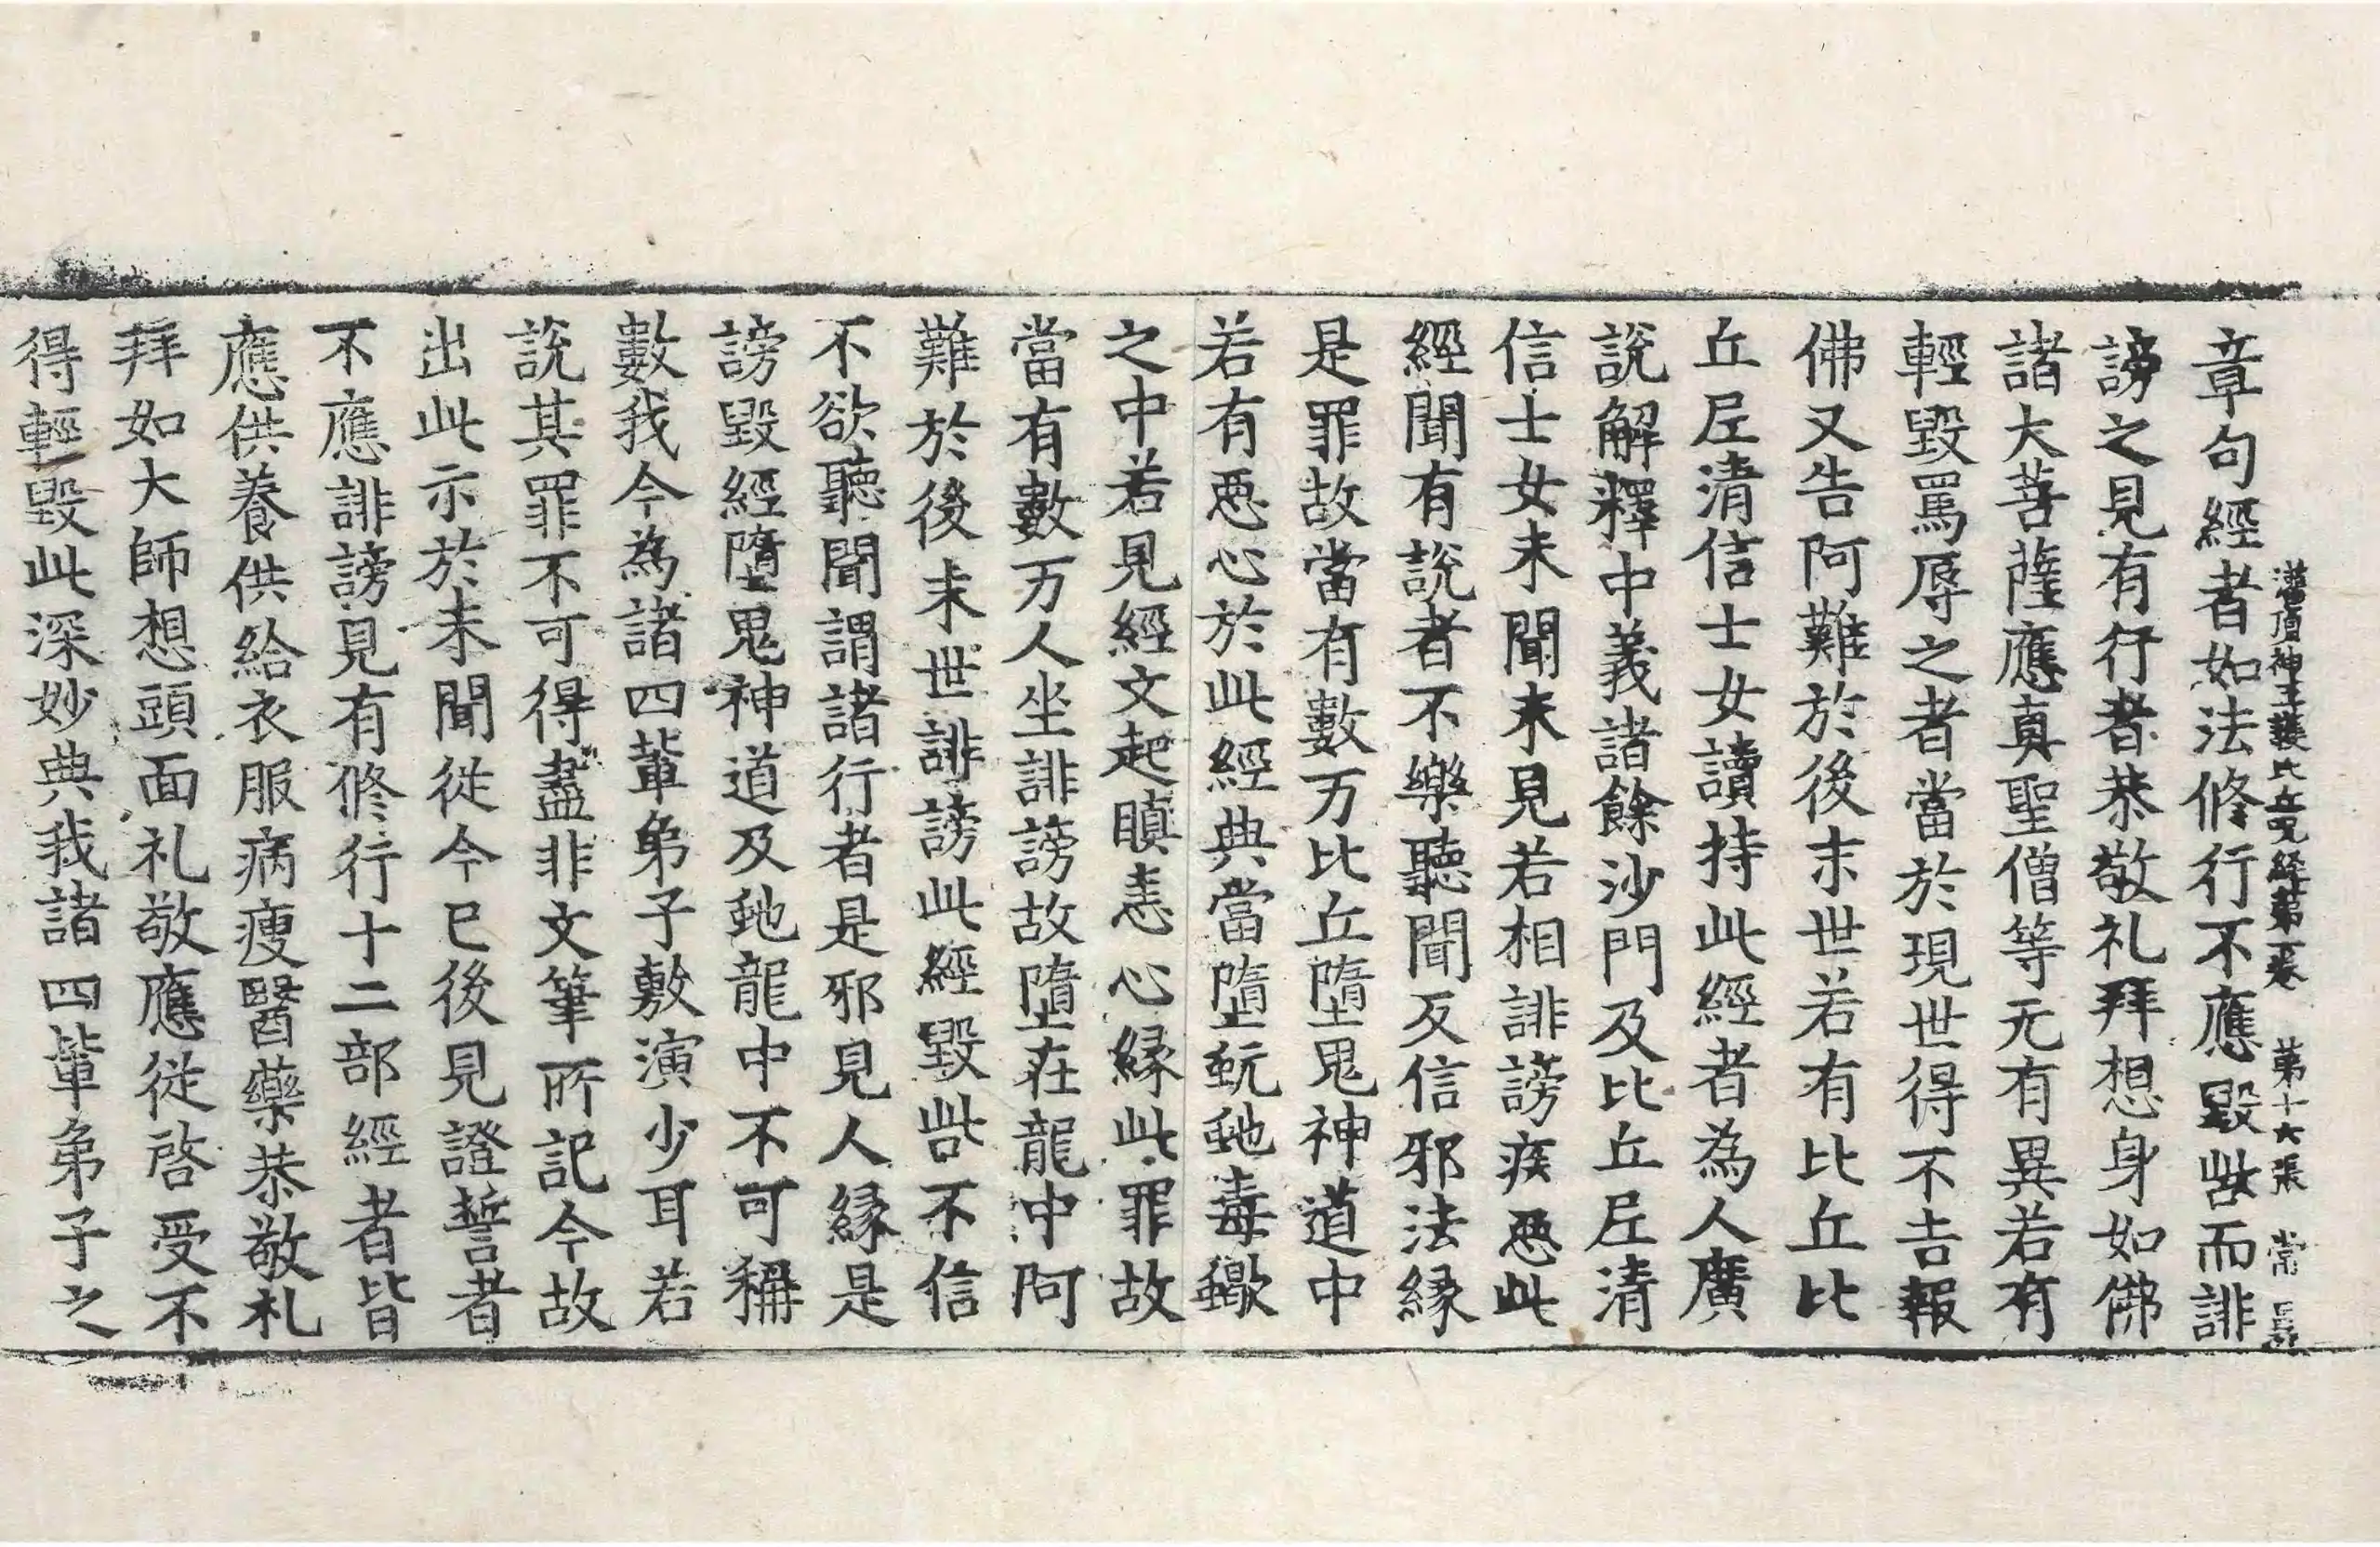 灌頂神王護比丘呪経第一卷 第十六張 常
章句經者如法修行不應毀呰而誹
謗之見有行者恭敬礼拜想身如佛
諸大菩薩應真聖僧等无有異若有
輕毀罵辱之者當於現世得不吉報
佛又告阿難於後末世若有比丘比
丘尼清信士女讀持此經者為人廣
說解釋中義諸餘沙門及比丘尼清
信士女未聞未見若相誹謗疾惡此
經聞有說者不樂聽聞反信邪法緣
是罪故當有數万比丘墮鬼神道中
若有惡心於此經典當墮蚖虵毒蠍
之中若見經文起瞋恚心緣此罪故
當有數万人坐誹謗故墮在龍中阿
難於後末世誹謗此經毀呰不信
不欲聽聞謂諸行者是邪見人緣是
謗毀經墮鬼神道及虵龍中不可稱
數我今為諸四輩弟子敷演少耳若
說其罪不可得盡非文筆所記今故
出此示於未聞從今已後見證誓者
不應誹謗見有修行十二部經者皆
應供養供給衣服病瘦醫藥恭敬礼
拜如大師想頭面礼敬應從啓受不
得輕毀此深妙典我諸四輩弟子之